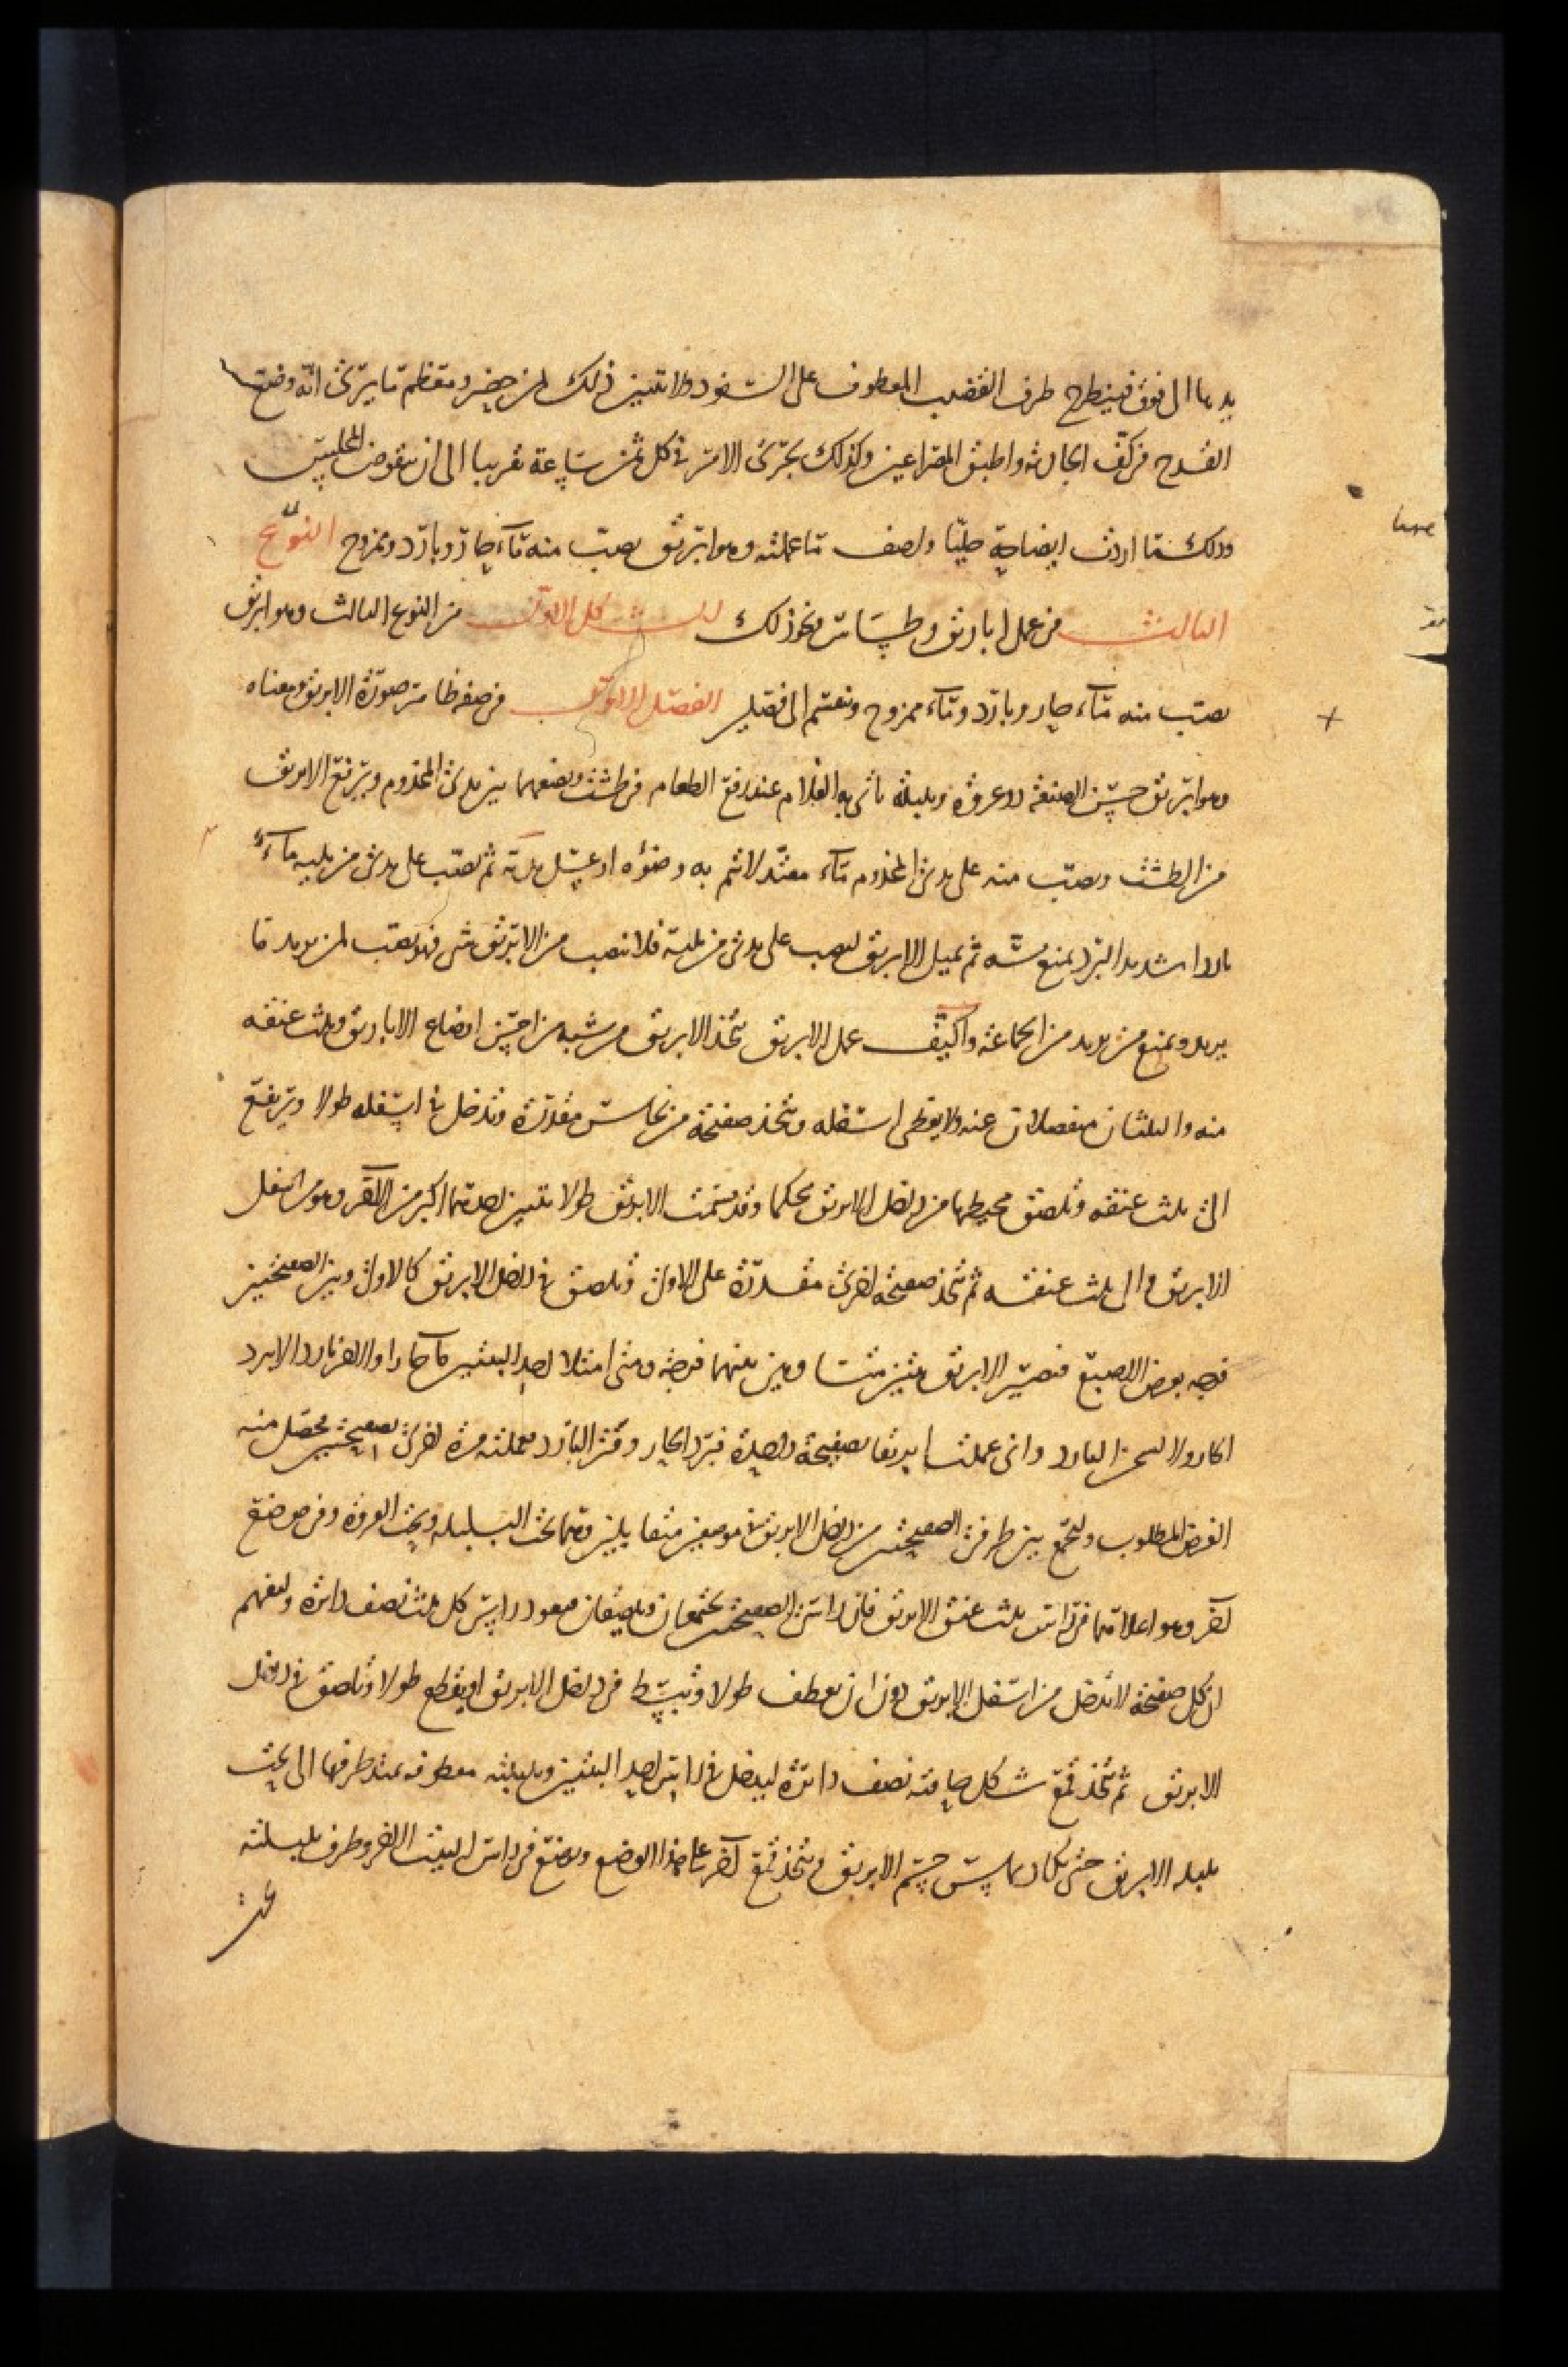 يدها الى فوق فينطرح طرف القضيب المعطوف على السفود ولا تتبين ذلك لمن حضر ومعظم ما يرى انه وضع
القدح في كف الجارية واطبق المصراعين وكذلك يجرى الامر في كل ثمن ساعة تقريبا الى ان يتقوض المجلس
وذلك ما اردت ايضاحه جليا ولصف ما عملته وهو ابريق يصب منه ماء حار وبارد وممزوج النوع
الثالث في عمل اباريق وطساس ونحو ذلك الشكل الاول من النوع الثالث وهو ابريق
يصب منه ماء حار وبارد وماء ممزوج وينقسم الى فصلين الفصل الاول في صفة ظاهر صورة الابريق ومعناه
وهو ابريق حسن الصنعة ذو عروة وبلبلة ياتى به الغلام عند رفع الطعام في طشت ويضعهما بين يدى المخدوم ويرفع الابريق
من الطشت ويصب منه على يدى المخدوم ماء معتدلا ثم به وضوءه او غسل يديه ثم يصب على يدى من يليه ماء
باردا شديد البرد يمنع مسه ثم يميل الابريق ليصب على يدى من يليه فلا ينصب من الابريق شى فهو يصب لمن يريد ما
يريد ويمنع من يريد من الجماعة واكيف عمل الابريق يتخذ الابريق من شبه من احسن اوضاع الاباريق وثلث عنقه
منه والثلثان منفصلان عنه ولا يغطى اسفله ويتخذ صفيحة من نحاس مقدرة وتدخل في اسفله طولا ويرتفع
الى ثلث عنقه ويلصق محيطها من داخل الابريق محكما وقد قسمت الابريق طولا بقسمين احدهما اكبر من الآخر وهو من اسفل
الابريق والى ثلث عنقه ثم يتخذ صفيحة اخرى مقدرة على الاولى ويلصق في داخل الابريق كالاولى وبين الصفيحتين
فرجه بعرض الاصبع فيصير الابريق بيتين وبين بينهما فرجة ومتى امتلا احد البيتين ماء حارا والاخر باردا لا يبرد
الحار ولا يسخن البارد وانى عملت ابريقا بصفيحة واحدة فبرد الحار وفتر البارد فعملته مرة اخرى بصفيحتين فحصل منه
الغرض المطلوب ولتجمع بين طرفى الصفيحتين من داخل الابريق في موضعين متقابلين وهما تحت البلبلة وتحت العروة وفي موضع
آخر وهو اعلاهما في راس ثلث عنق الابريق فان راسى الصفيحتين يجتمعان ويلصقان فيعود راس كل بيت نصف دائرة وليفهم
ان كل صفيحة لا تدخل من اسفل الابريق دون ان يعطف طولا وتبسط في داخل الابريق او يقطع طولا ويلصق في داخل
الابريق ثم يتخذ قمع شكل حافته نصف دائرة ليدخل في راس احد البيتين وبلبلته معطوفة يمتد طرفها الى تحت
بلبلة الابريق حتى يكاد يماس جسم الابريق ويتخذ قمع آخر على هذا الوضع ويوضع في راس البيت الاخر وطرف بلبلته
تحت